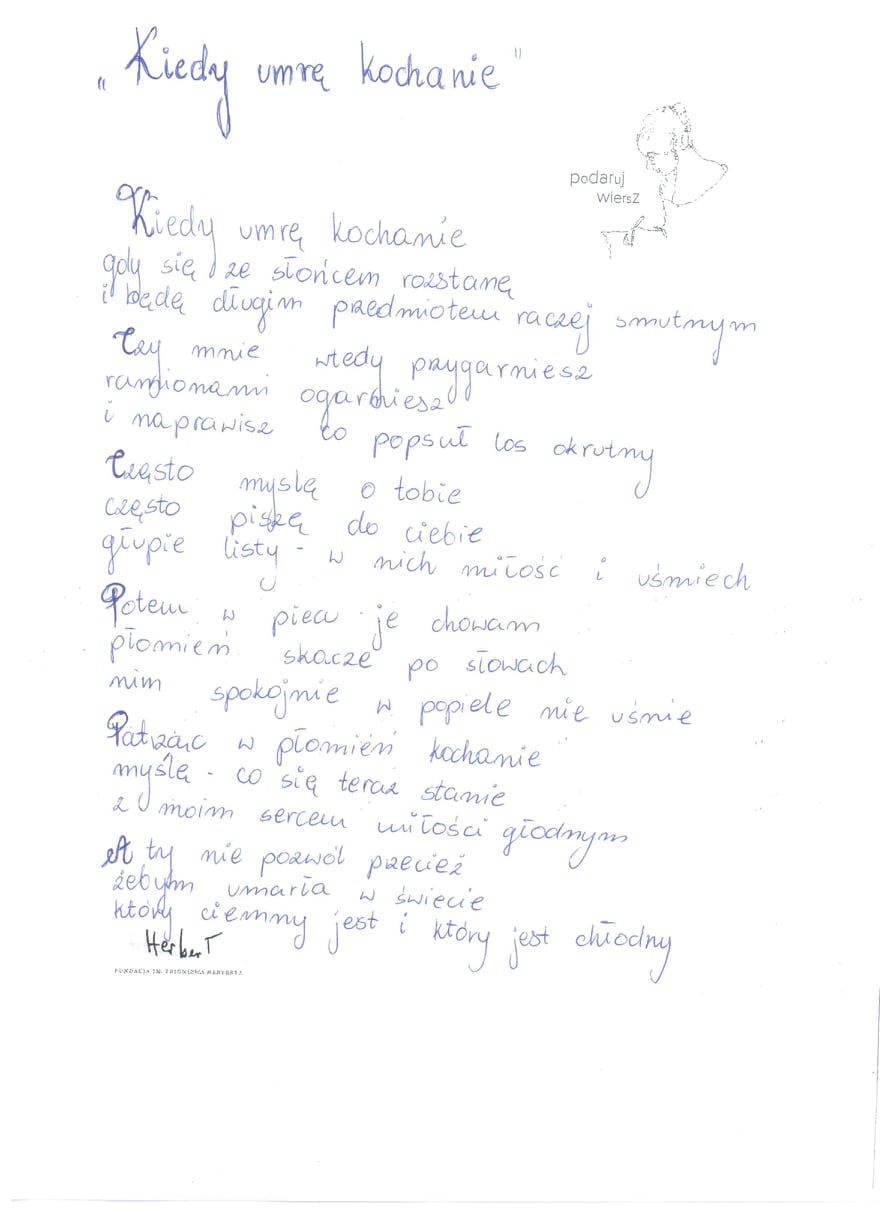 „Kiedy umrę kochanie"
podaruj
wiersz
Kiedy umrę kochanie
gdy się ze słońcem rozstanę
i będę długim przedmiotem raczej smutnym
Czy mnie wtedy przygarniesz
ramionami ogarniesz
i naprawisz co popsuł los okrutny
Często myślę o tobie
często piszę do ciebie
głupie listy - w nich miłość i uśmiech
Potem w piecu je chowam
płomień skacze po słowach
nim spokojnie w popiele nie uśnie
Patrząc w płomień kochanie
myślę - co się teraz stanie
z moim sercem miłości głodnym
A ty nie pozwól przecież
żebym umarła w świecie
który ciemny jest i który jest chłodny
Herbert
FUNDACJA IM. ZBIGNIEWA HERBERTA